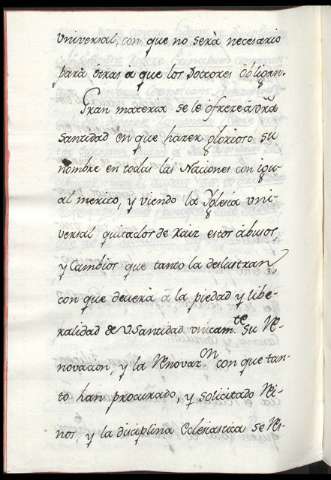 universal, con que no será necesario
para otras a que los Doctores obligan.
Gran materia se le ofrece a vr̃a
santidad en que hazer glorioso su
nombre en todas las Naciones con
al mexico, y viendo la Yglesia uni-
versal quitados de raiz estos abusos
y Cambios que tanto la deslustran
con que deverá a la piedad y libe-
ralidad de V Santidad unicamte su Re-
novacion, y la Renovaron con que tan-
to han procurado, y solicitado Rei-
nos y la disciplina Eclesiastica se Re-